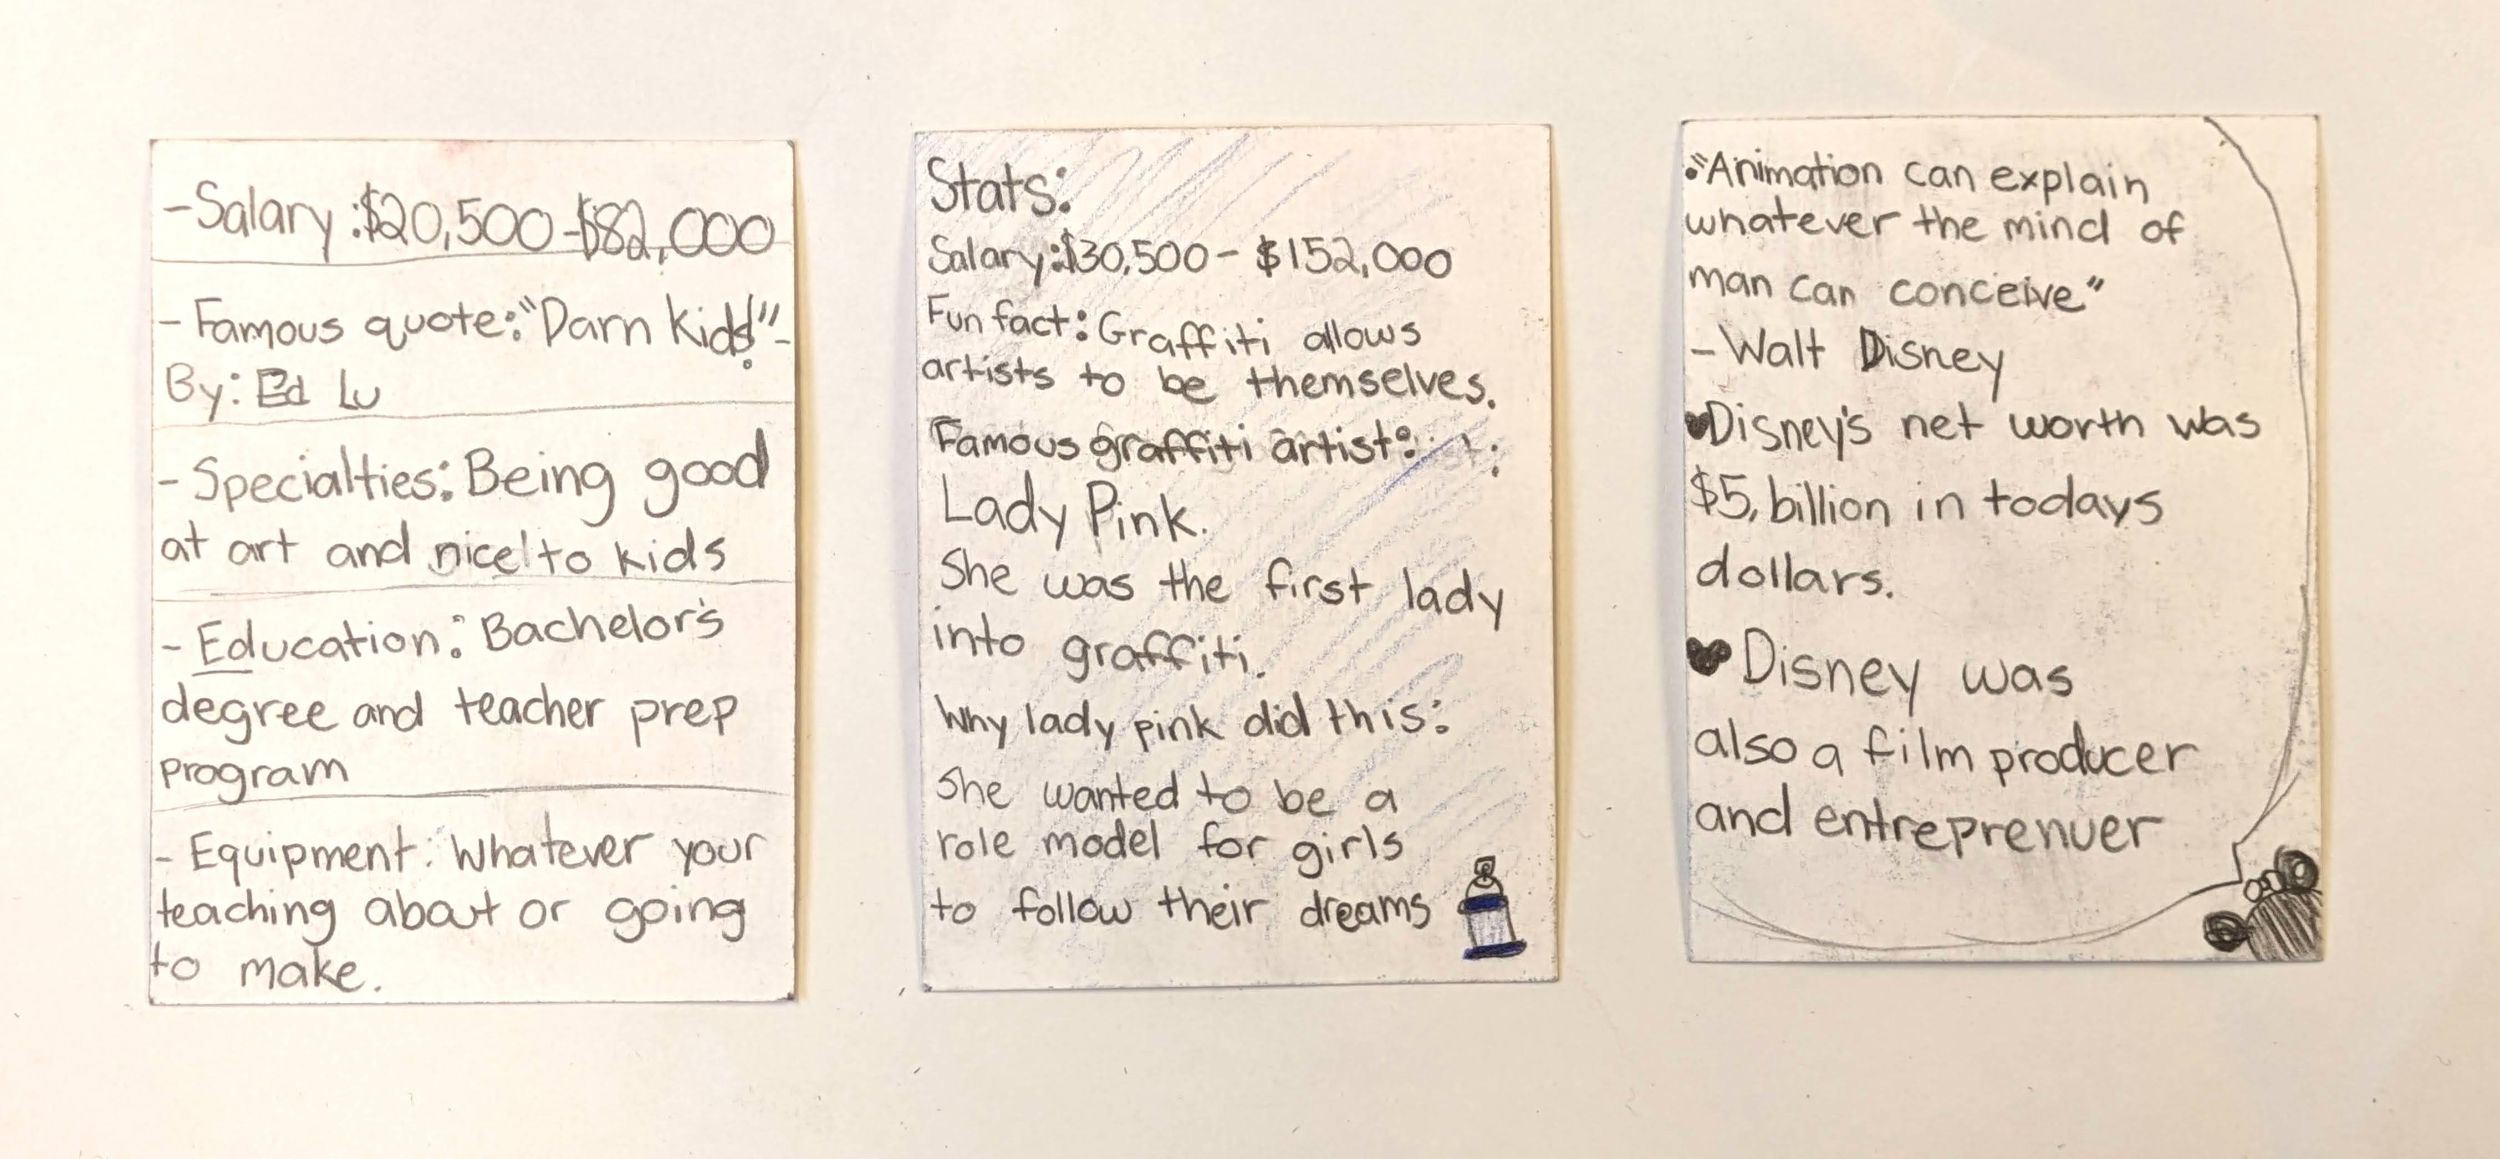 -Salary:$20,500-$82,000
-Famous quote:"Darn kids!"-
By: Ed Lu
-Specialties: Being good
at art and nice to kids
-Education: Bachelor's
degree and teacher prep
program
-Equipment: Whatever your
teaching about or going
to make.
Stats:
Salary:$30,500-$152,000
Fun fact: Graffiti allows
artists to be themselves.
Famous graffiti artist:
Lady Pink.
She was the first lady
into graffiti.
Why lady pink did this:
She wanted to be a
role model for girls
to follow their dreams
"Animation can explain
whatever the mind of
man can conceive"
-Walt Disney
Disney's net worth was
$5, billion in todays
dollars.
Disney was
also a film producer
and entreprenuer